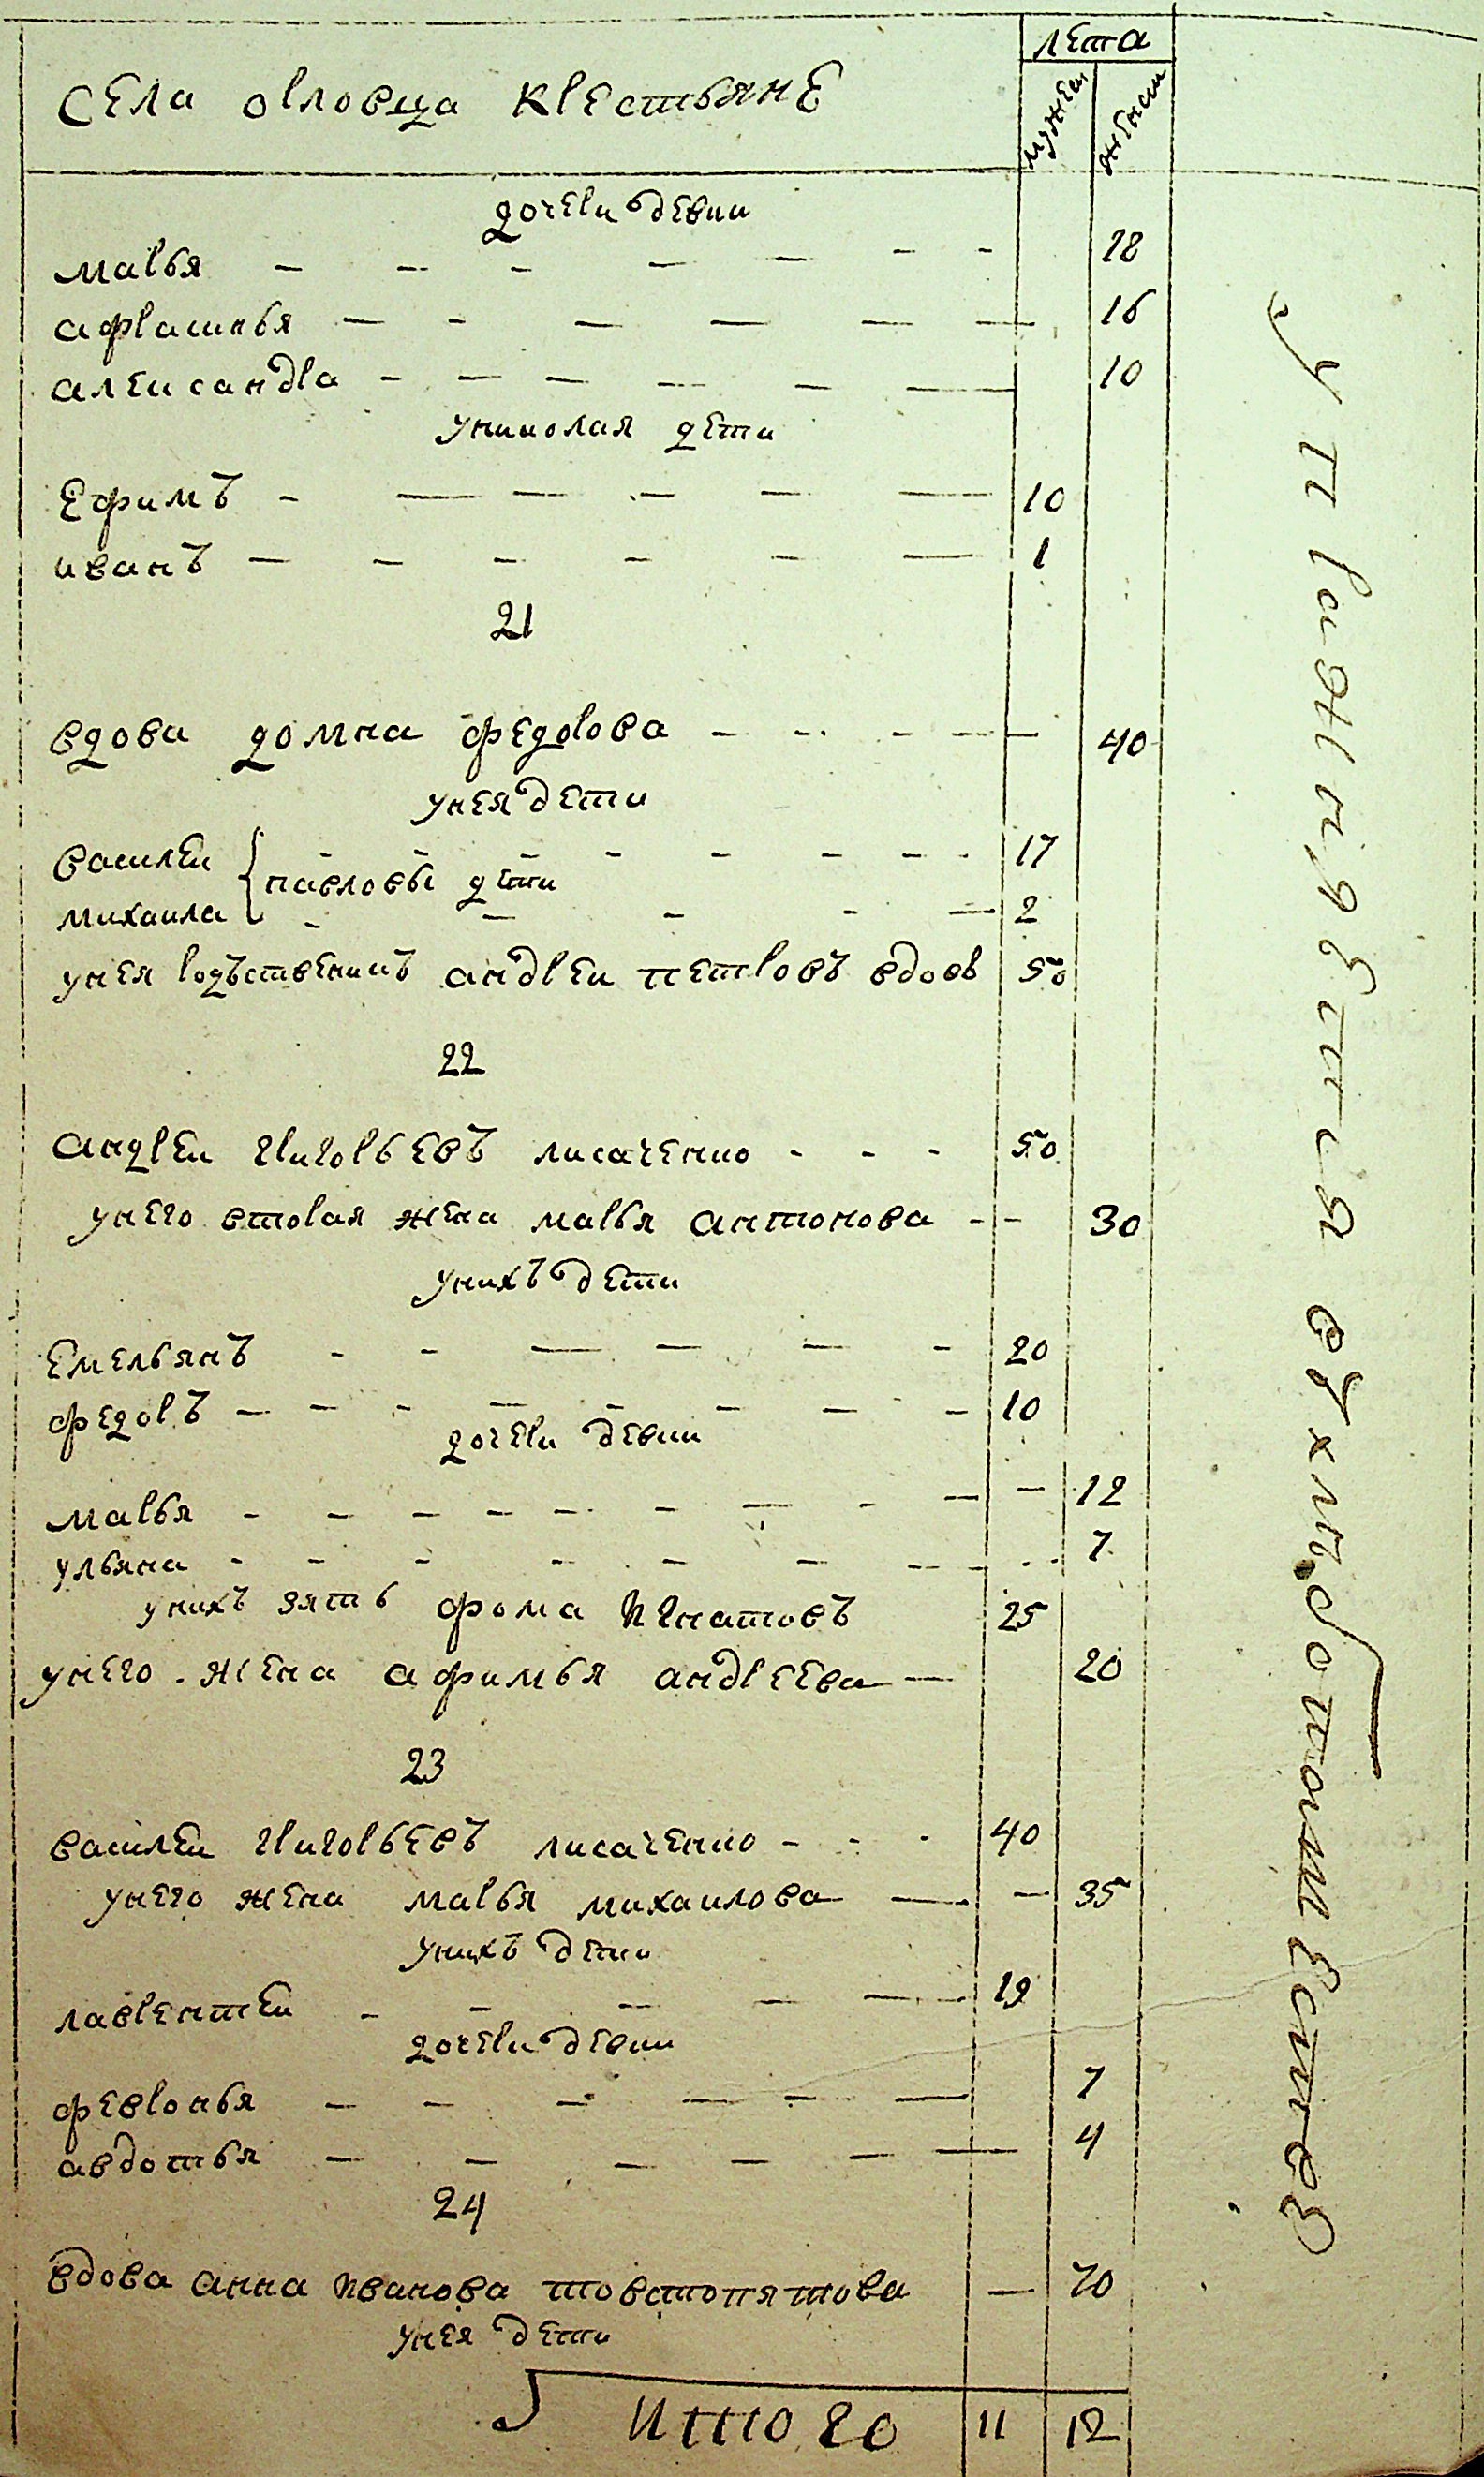 лета
Села орловца крестьяне
мужеи
женски
дочери девки
марья 18
афрасинья 16
александра 10
униколая дети
Ефимъ 10
иванъ 1
21
вдова домна федорова 40
унея дети
василеи 17
павловы дети
михаила 2
унея родъственикъ андреи петровъ вдовъ 50
22
андреи григорьевъ лисаченко 50
унего вторая жена марья антонова 30
унихъ дети
Емельянъ 20
федоръ 10
дочери девки
марья 12
ульяна 7
унихъ зять фома игнатовъ 25
унего жена афимья андреева 20
23
василеи григорьевъ лисаченко 40
унего жена марья михаилова 35
унихъ дети
лаврентеи 19
дочери девки
февронья 4
авдотья 4
24
вдова анна иванова товстопятова 70
унея дети
Итого 11 12